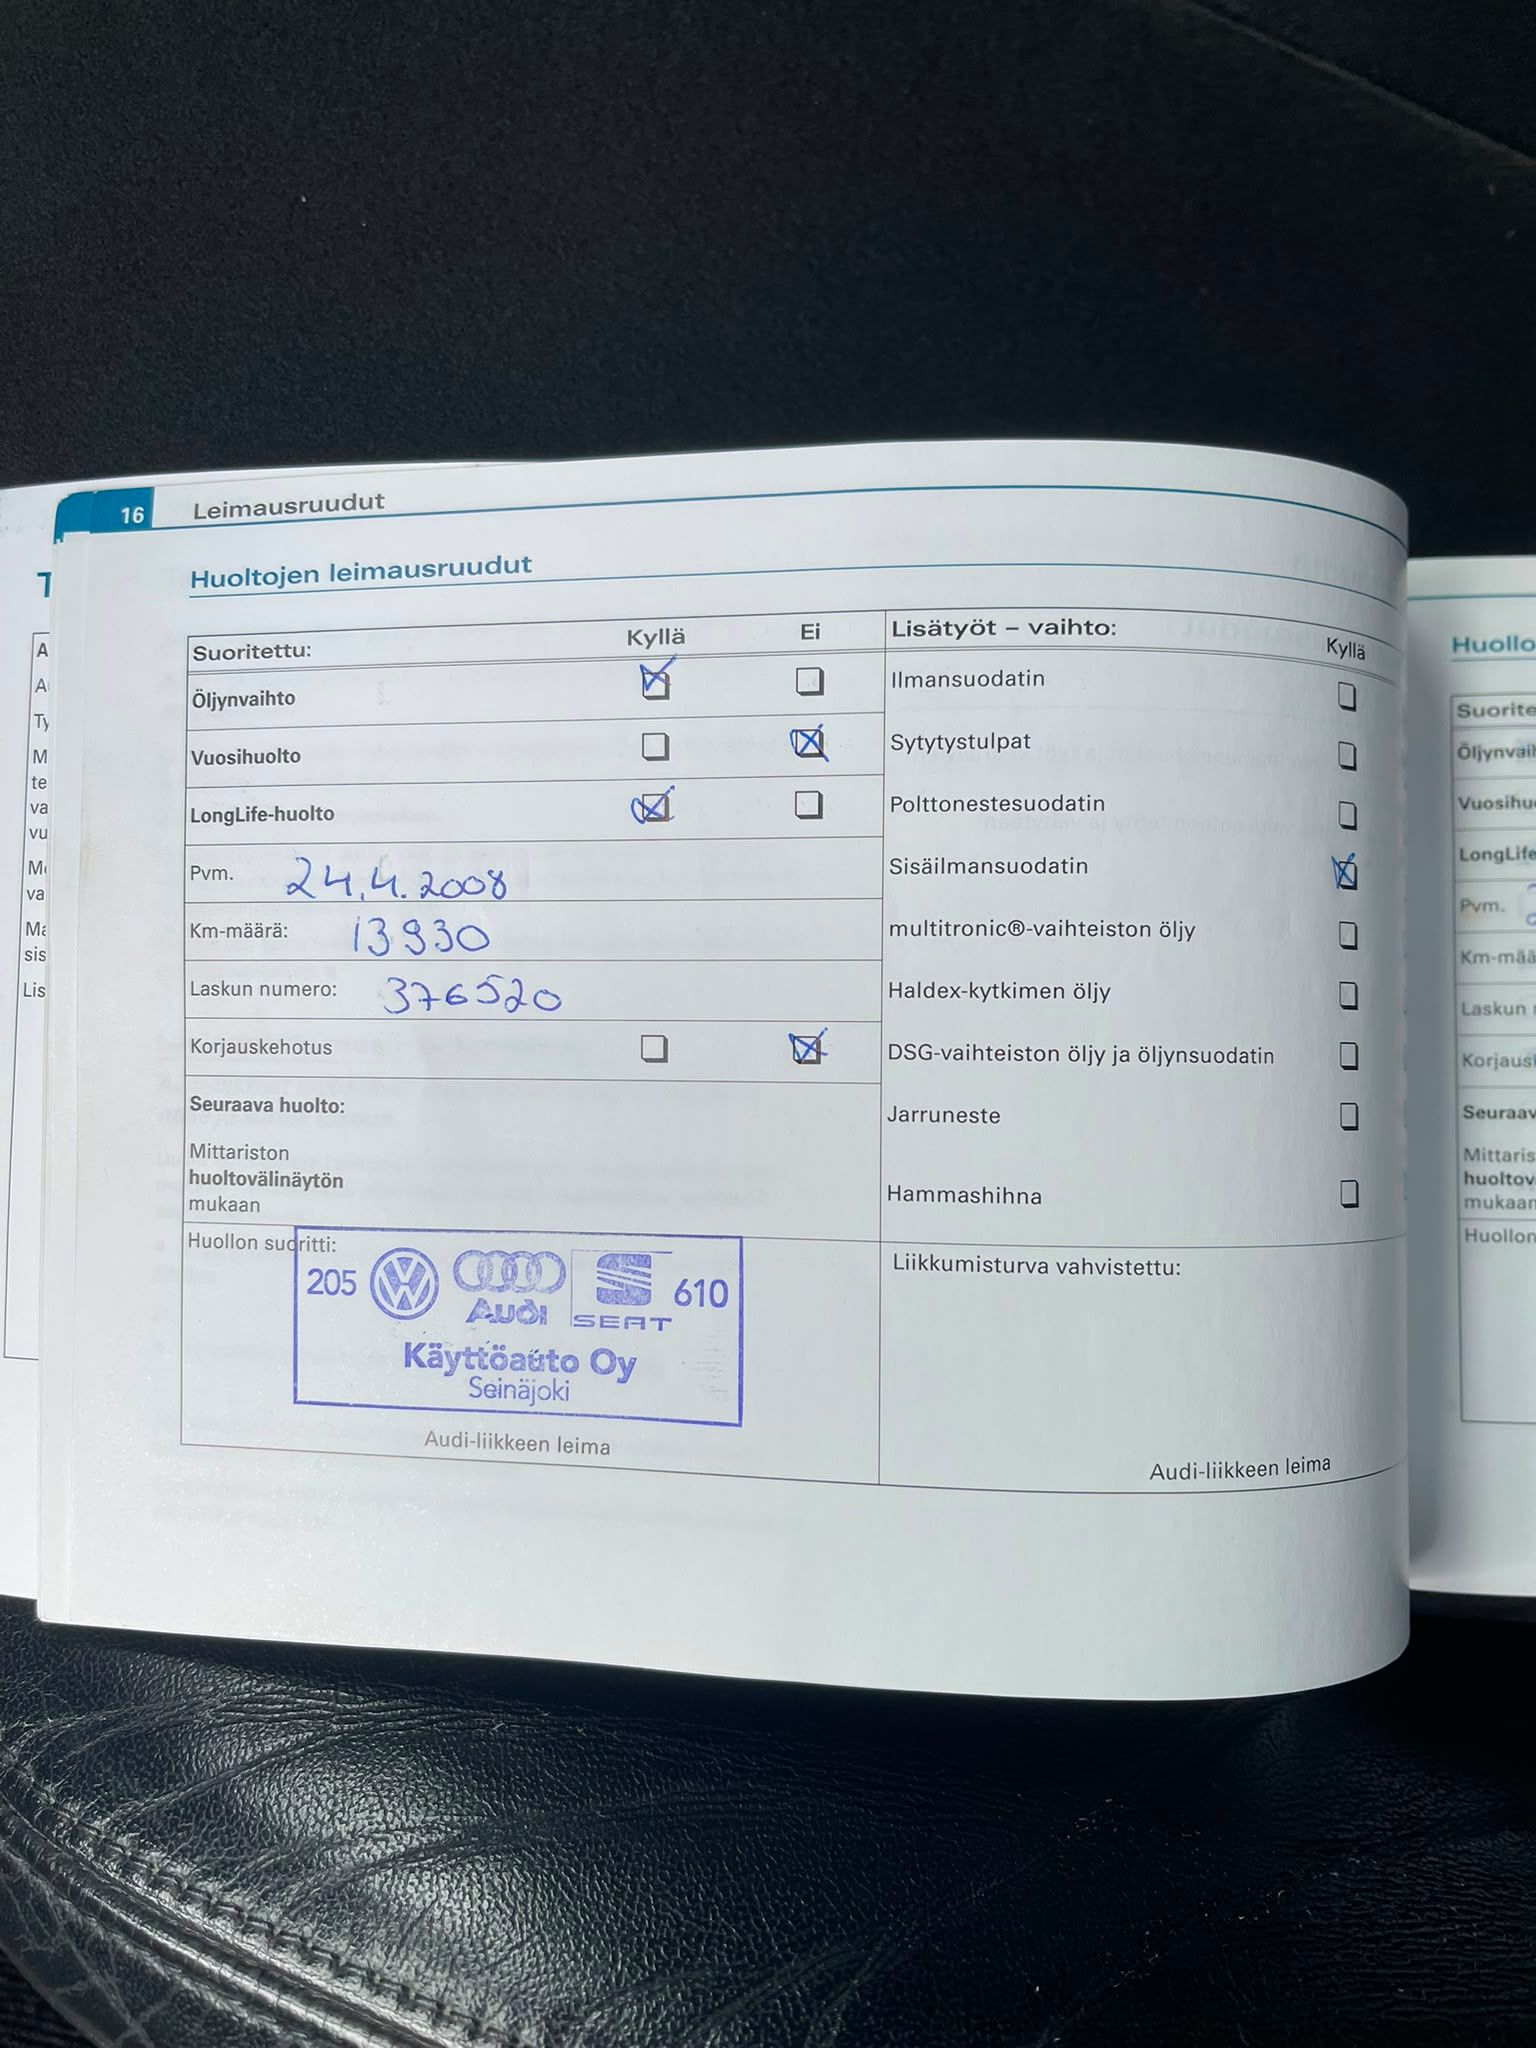 16 Leimausruudut
Huoltojen leimausruudut
Suoritettu: Kyllä Ei
Öljynvaihto
Vuosihuolto
LongLife-huolto
Pvm. 24.4.2008
Km-määrä: 13930
Laskun numero: 376520
Korjauskehotus
Seuraava huolto:
Mittariston
huoltovälinäytön
mukaan
Huollon suoritti:
205 Audi SEAT 610
Käyttöauto Oy
Seinäjoki
Audi-liikkeen leima
Lisätyöt – vaihto: Kyllä
Ilmansuodatin
Sytytystulpat
Polttonestesuodatin
Sisäilmansuodatin
multitronic®-vaihteiston öljy
Haldex-kytkimen öljy
DSG-vaihteiston öljy ja öljynsuodatin
Jarruneste
Hammashihna
Liikkumisturva vahvistettu:
Audi-liikkeen leima
Pvm.
Laskun
mukaan